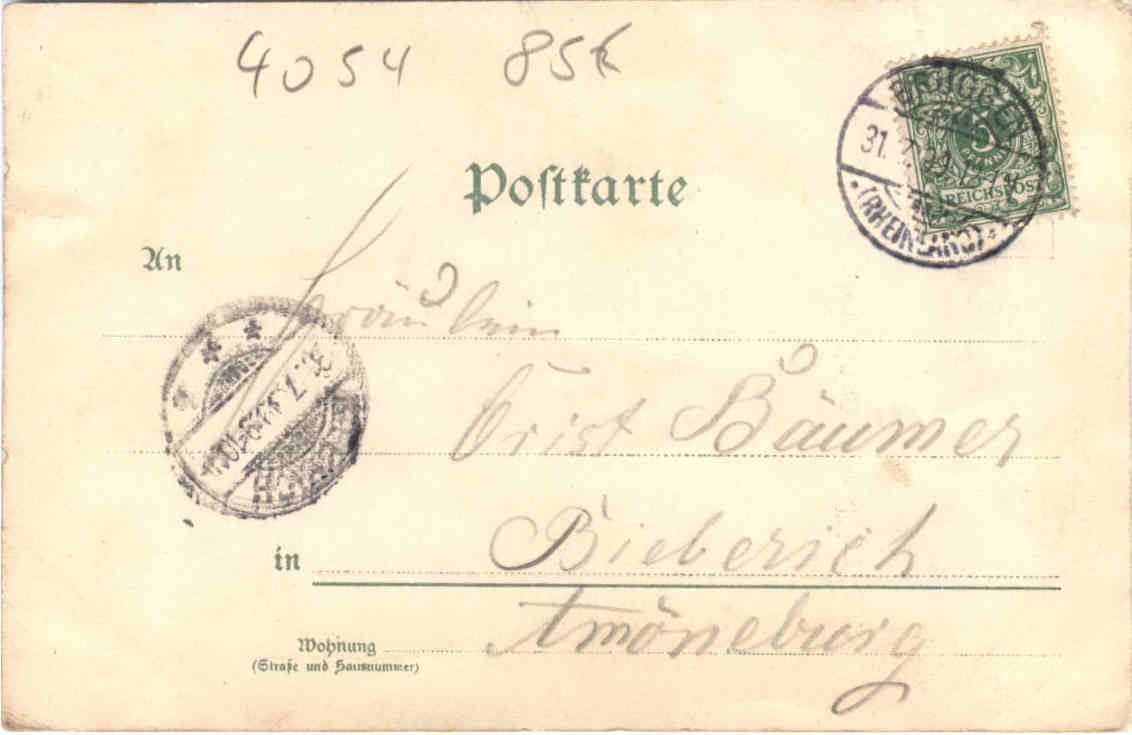 4054 85k
BRÜGGEN
31.7.99
(RHEINLAND)
5
PFENNIG
REICHSPOST
Postkarte
An
Fräulein
Crist Bäumer
in Bieberich
Amöneburg
Wohnung
(Straße und Hausnummer)